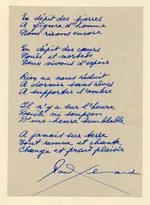 En dépit des pierres
A figure d'homme
Nous rirons encore
En dépit des cœurs
Noués et mortels
Nous vivons d'espoir
Rien ne nous réduit
A dormir sans rêves
A supporter l'ombre
Il n'y a sur terre
Doute ni soupçon
D'une heure semblable
A jamais sur terre
Tout remue et chante
Change et prend plaisir
Paul Eluard